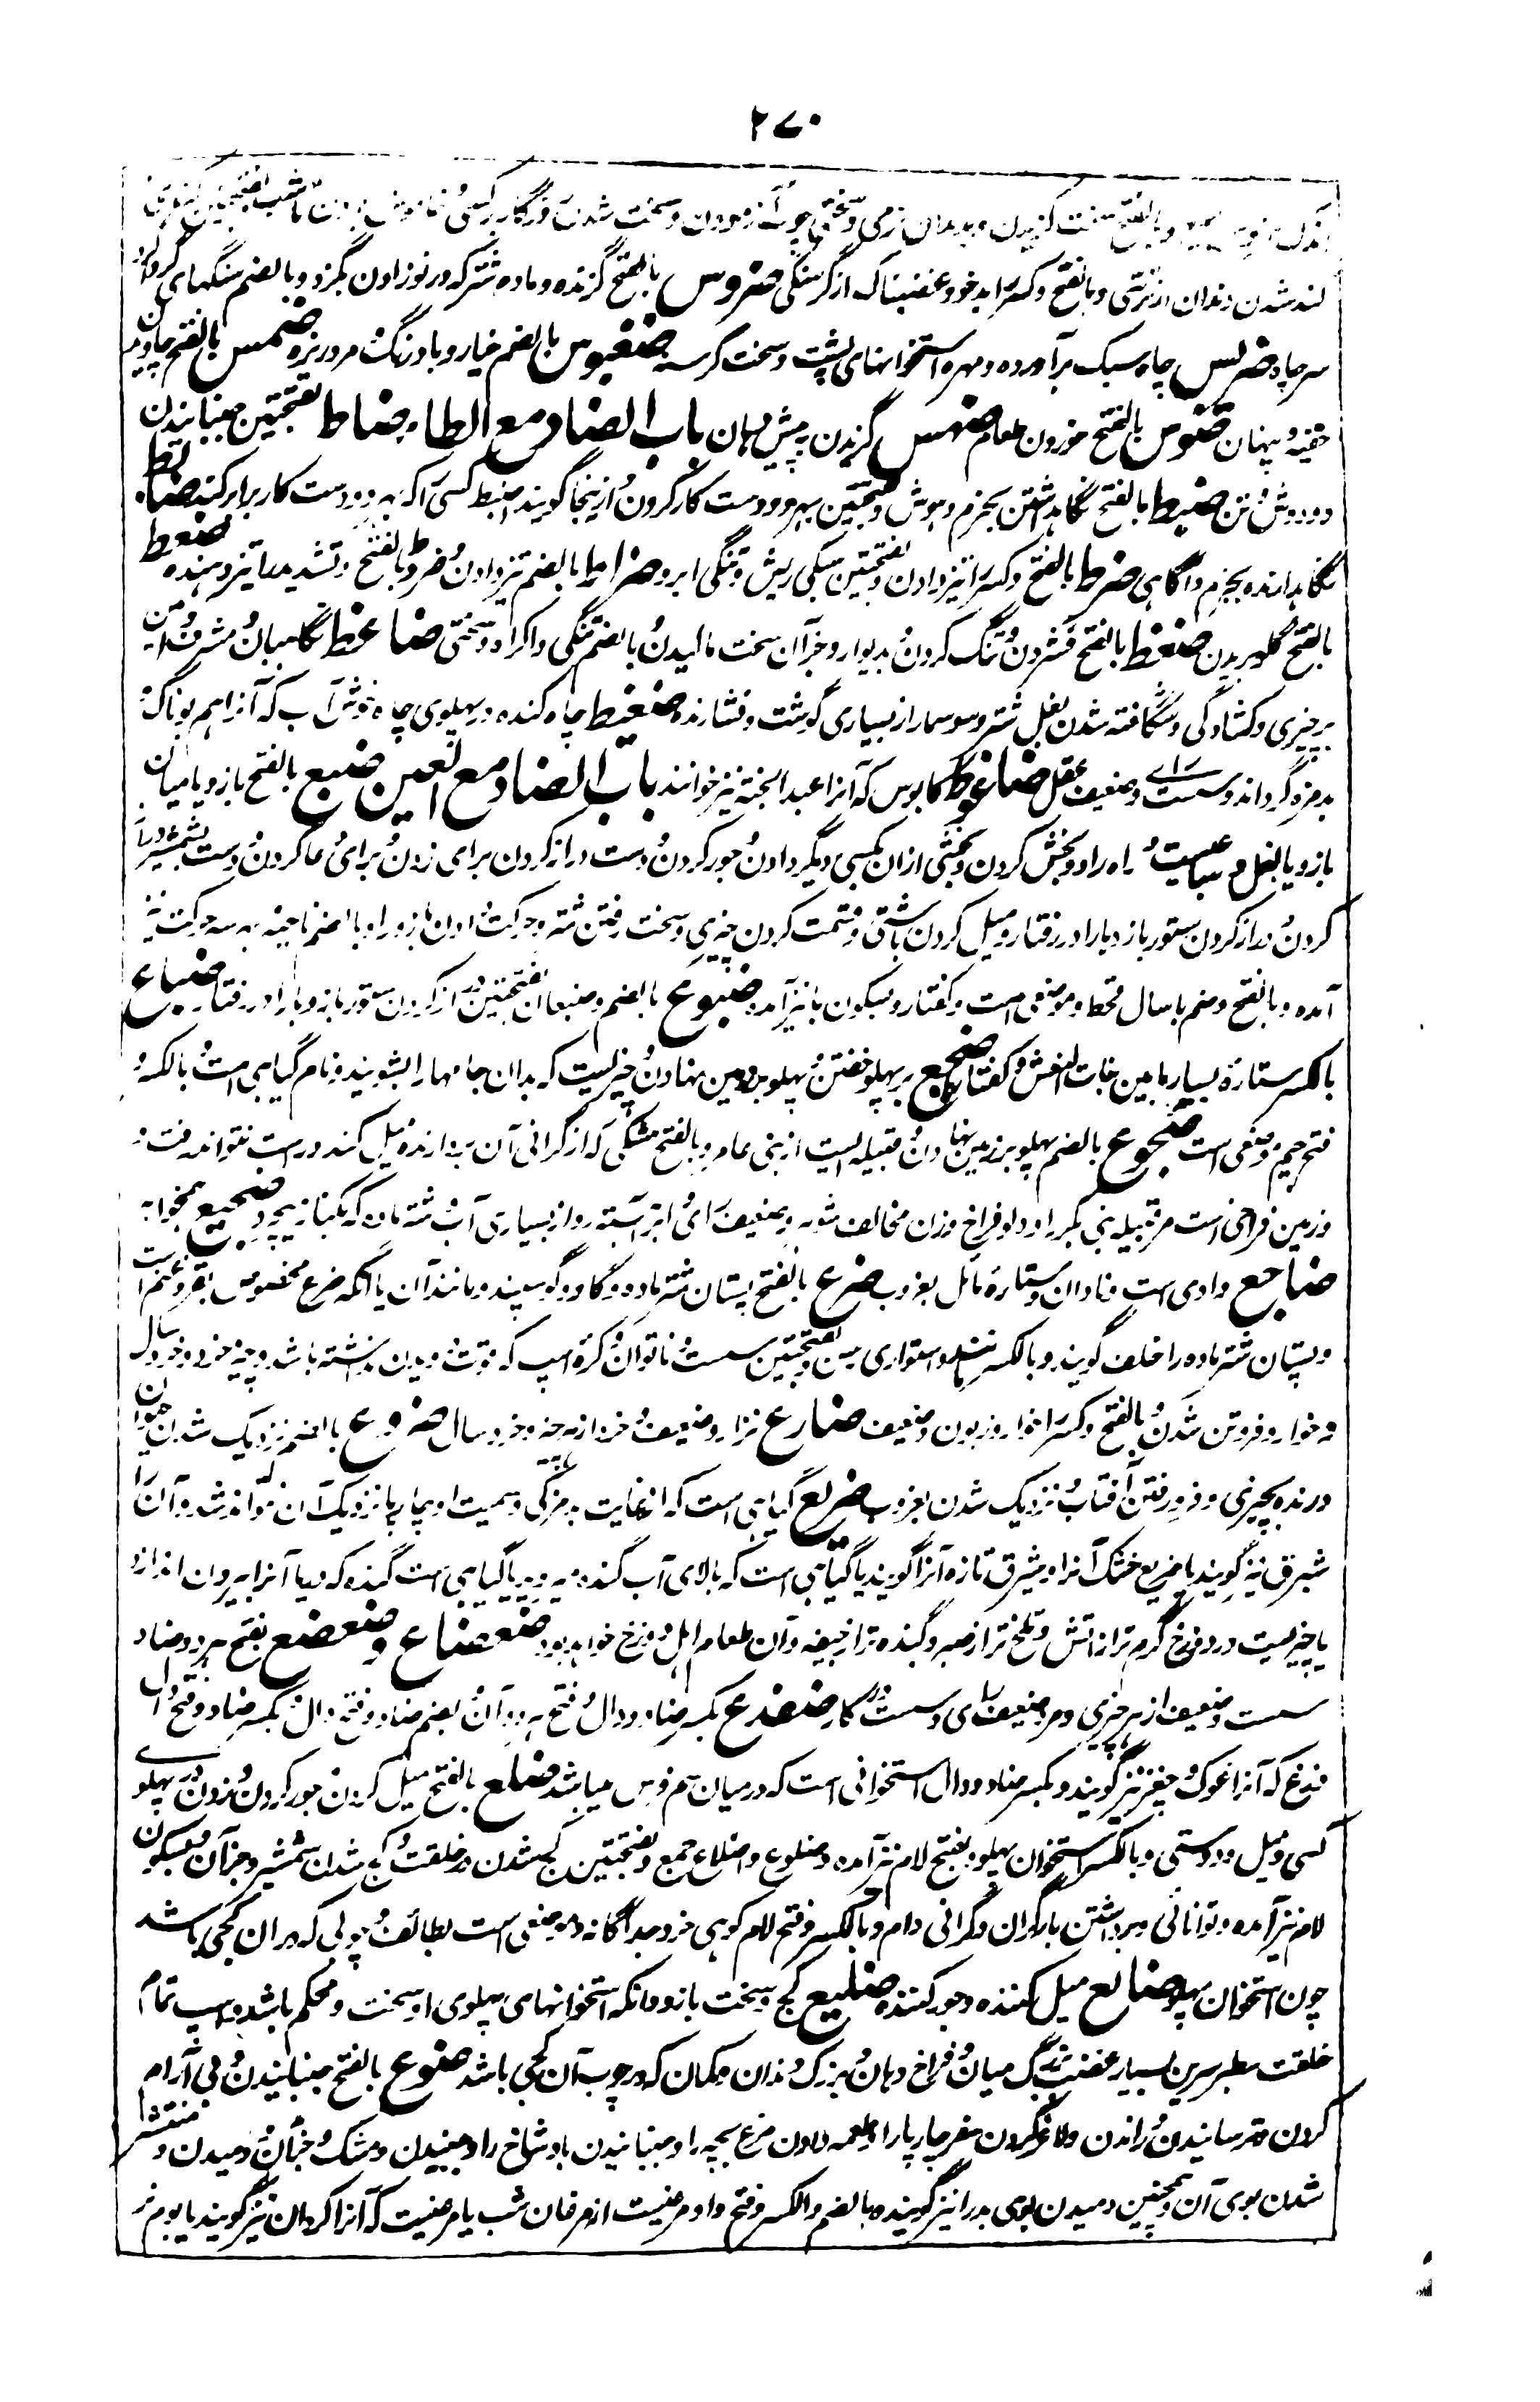 ۲۷۰
سخت گزیدن و بدندان نرمی و سختی چوب آزمودن و سخت شدن روزگار بر کسی و خاموش
کند شدن دندان از ترشی و بالفتح و کسر را بدخو و غضبناک از گرسنگی ضروس بالفتح گزنده و ماده شتر که در نوزادن بگزد و بالضم سنگهای گرداگرد
سر چاه ضریس چاه بسنگ برآورده و مهره استخوانهای پشت و سخت گرسنه ضغبوس بالضم خیار و بادرنگ و مرد ریزه ضمس بالفتح خاویدن
خفیه و پنهان ضوس بالفتح خوردن طعام ضهس گزیدن به پیش دهان باب الضاد مع الطاء ضیاط بفتحتین جنبانیدن
دو دوش در رفتن ضبط بالفتح نگاه داشتن بحزم و هوش و بفتحتین بهر دو دست کار کردن و ازینجا گویند اضبط کسی را که بهر دو دست کار برابر کند ضابط
نگاهدارنده بحزم و آگاهی ضرط بالفتح و کسر را تیز دادن و بفتحتین سبکی ریش و تنگی ابرو ضراط بالضم تیز دادن ضروط بالفتح و تشدید را تیز دهنده ضعط
بالفتح گلو بریدن ضغط بالفتح فشردن و تنگ کردن بدیوار و جز آن سخت مالیدن و بالضم تنگی و اکراه و سختی ضاغط نگاهبان و مشرف و امین
بر چیزی و کشادگی و شگافته شدن بغل شتر و سوسمار از بسیاری گوشت و فشارنده ضغیط چاه کنده در پهلوی چاه خوش آب که آنرا هم بوناک
بدمزه گرداند و سست رای و ضعیف عقل ضاغوط کابوس که آنرا عبدالجنة نیز خوانند باب الضاد مع العین ضبع بالفتح بازو یا میان
بازو یا بغل و سیاست راه را و بخش کردن و بخشی ازان بکسی دیگر دادن و جور کردن و دست دراز کردن برای زدن و برای دعا کردن و دست بشمشیر دراز
کردن و دراز کردن ستور بازوها را در رفتار و میل کردن بآشتی و قسمت کردن چیزی و سخت رفتن شتر و حرکت دادن بازو را و بالضم ناحیه بهر سه حرکت نیز
آمده و بالفتح و ضم با سال قحط و موضعی است و کفتار و بسکون با نیز آمده ضبوع بالضم و ضبعان بفتحتین دراز کردن ستور بازوها را در رفتار ضباع
بالکسر ستارهٔ بسیار مابین بنات النعش و کفتاریها ضجع بر پهلو خفتن و پهلو بر زمین نهادن و چیزیست که بدان جامها را بشویند و نام گیاهی است و بالکسر و
فتح جیم موضعی است ضجوع بالضم پهلو بر زمین نهادن و قبیله ایست از بنی عامر و بالفتح مشکی که از گرانی آن بردارنده میل کند و راست نتواند رفت و
زمین فراخی است مر قبیله بنی بکر را و دلو فراخ و زن مخالف شوهر و ضعیف رای و ابر آهسته رو از بسیاری آب و شتر ماده که یکجانب چرد ضجیع همخوابه
ضاجع وادی است و نادان و ستاره مائل بغروب ضرع بالفتح پستان شتر ماده و گاو و گوسپند و مانند آن یا آنکه ضرع مخصوص بقر و غنم است
و پستان شتر ماده را خلف گویند و بالکسر مثل و استواری رسن و بفتحتین سست و ناتوان و کره اسپ که قوت دویدن نداشته باشد و چیز خرد و خرد سال
و خوار و فروتن شدن و بالفتح و کسر را خوار و زبون و ضعیف ضارع نزار و ضعیف و خرد از هر چیز و خرد سال ضروع بالضم نزدیک شدن حیوان
درنده بچیزی و فرو رفتن آفتاب و نزدیک شدن بغروب ضریع گیاهی است که از غایت بدمزگی و سمیت او چارپا نزدیک آن نتواند شد و آن را
شبرق نیز گویند یا ضریع خشک آنرا و شبرق تازه آنرا گویند یا گیاهی است که بالای آب گنده میروید یا گیاهی است گنده که دریا آنرا بیرون اندازد
یا چیزیست در دوزخ گرم تر از آتش و تلخ تر از صبر و گنده تر از جیفه و آن طعام اهل دوزخ خواهد بود ضعضاع و ضعضع بفتح هر دو ضاد
سست و ضعیف از هر چیزی و مرد ضعیف رای و سست در کار ضفدع بکسر ضاد و دال و فتح هر دو آن و بضم ضاد و فتح دال و بکسر ضاد و فتح دال
غوک که آنرا غوک و جغز نیز گویند و بکسر ضاد و دال استخوانی است که در میان سم فرس میباشد ضلع بالفتح میل کردن و جور کردن و زدن در پهلوی
کسی و میل و دوستی و بالکسر استخوان پهلو و بفتح لام نیز آمده و ضلوع و اضلاع جمع و بفتحتین کج شدن در خلقت و کج شدن شمشیر و جز آن و بسکون
لام نیز آمده و توانائی و برداشتن بار گران و گرانی دام و بالکسر و فتح لام کوهی خرد جداگانه و موضعی است بطائف و چوبی که در آن کجی باشد
چون استخوان پهلو ضالع میل کننده و جور کننده ضلیع کج و سخت بازو و آنکه استخوانهای پهلوی او سخت و محکم باشد و اسپ تمام
خلقت سطبر سرین بسیار عضب بزرگ میان و فراخ دهان و بزرگ دندان و کمان که در چوب آن کجی باشد ضوع بالفتح جنبانیدن و بی آرام
کردن و ترسانیدن و راندن و لاغر کردن سفر چارپا را و طعمه دادن مرغ بچه را و جنبانیدن باد شاخ را و جنبیدن و مشک و جز آن دمیدن و منتشر
شدن بوی آن و همچنین دمیدن بوی بد را نیز گویند و بالضم و الکسر و فتح واو مرغیست از مرغان شب یا مرغیست که آنرا کروان نیز گویند یا بوم نر